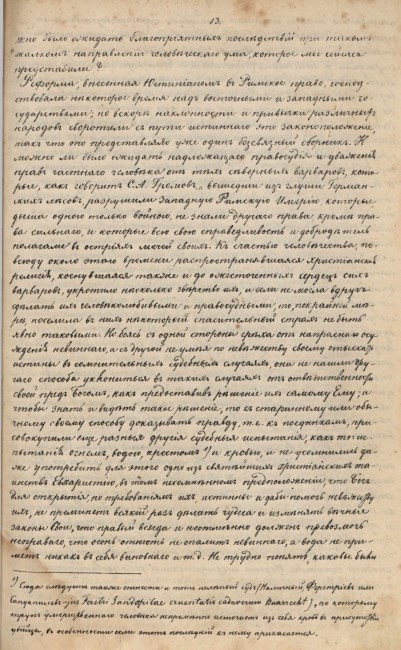 13.
жно было ожидать благопріятныхъ послѣдствій при такомъ
жалкомъ направленіи человѣческаго ума, которое мы сейчасъ
представили?
Реформа, внесенная Юстиніаномъ въ Римское право, господ-
ствовала нѣкоторое время надъ восточными и западными го-
сударствами; но вскорѣ наклонности и привычки различныхъ
народовъ своротили съ пути истиннаго это законоположеніе
такъ что оно представляло уже одинъ безсвязный сборникъ. И
можно ли было ожидать надлежащаго правосудія и уваженія
правъ частнаго человѣка отъ тѣхъ сѣверныхъ варваровъ, кото-
рые, какъ говоритъ С.А. Громовъ, „вышедши изъ глуши Герман-
скихъ лѣсовъ, разрушили Западную Римскую Имперію которые
дыша одною только войною, не знали другаго права, кромѣ пра-
ва сильнаго, и которые всю свою справедливость и добродѣтель
полагали въ остріяхъ мечей своихъ. Къ счастью человѣчества, по-
всюду около этаго времени распространявшаяся христіанская
религія, коснувшаяся также и до ожесточенныхъ сердецъ сихъ
варваровъ, укротило нѣсколько звѣрство ихъ, и если не могла вдругъ
сдѣлать ихъ человѣколюбивыми и правосудными, то, покрайней мѣ-
рѣ, поселила въ нихъ нѣкоторый спасительный страхъ не быть
явно таковыми. Но боясь съ одной стороны грѣха отъ напраснаго осу-
жденія невиннаго, а съ другой не умѣя по невѣжеству своему отыскать
истины въ сомнительныхъ судебныхъ случаяхъ, они не нашли дру-
гаго способа уклониться въ такихъ случаяхъ отъ отвѣтственности
своей предъ Богомъ, какъ предоставивъ рѣшеніе ихъ самому Ему; а
чтобы знать и видѣть такое рѣшеніе, то къ старинному или обы-
чному своему способу доказывать правду, т.е. къ поединкамъ, при-
совокупили еще разныя другія судебныя испытанія, какъ то: ис-
пытанія огнемъ, водою, крестомъ ¹) и кровью, и не усомнились да-
же употребить для этого одно изъ святѣйшихъ христіанскихъ та-
инствъ Евхаристію, въ томъ несомнѣнномъ предположеніи, что Богъ
для открытія, по требованіямъ ихъ, истины и дабы помочь невѣжеству
ихъ, не преминетъ всякій разъ дѣлать чудеса и измѣнять вѣчные
законы Свои, что правый всегда и неотмѣнно долженъ превозмочь
неправаго, что огонь отнюдь не опалитъ невиннаго, а вода не при-
метъ никакъ въ себя виновнаго и т.д. Не трудно понять, каковы были
¹) Сюда слѣдуетъ также отнести и
по которому
трупъ умерщвленнаго человѣка непремѣнно источаетъ изъ себя кровь въ присутствіи
убійцы, въ особенности если этотъ послѣдній къ нему прикасается.